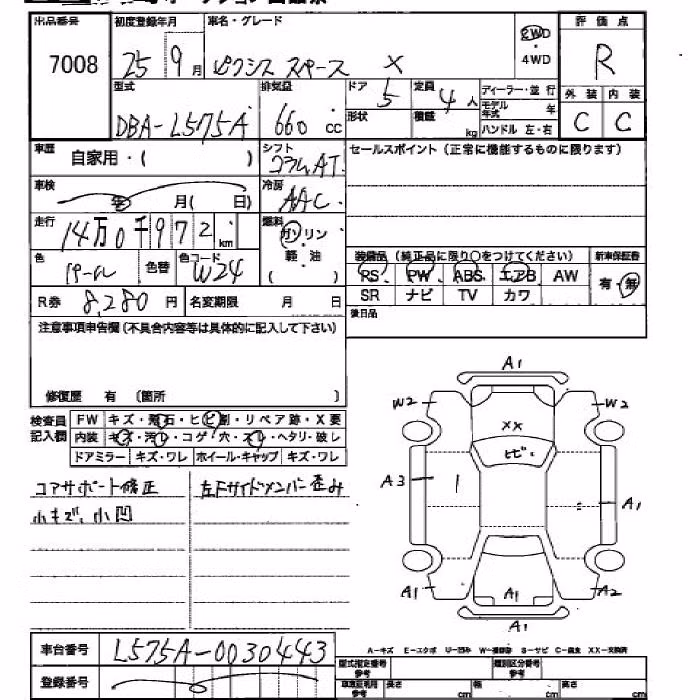 出品番号 7008
初度登録年月 25年 9月
車名・グレード ピクシス スペース X
2WD・4WD
評価点 R
外装 内装
C C
型式 DBA-L575A
排気量 660 cc
ドア 5
形状
定員 4人
積載 kg
ディーラー・並行
モデル年式 年
ハンドル 左・右
車歴 自家用・( )
シフト コラムAT
セールスポイント(正常に機能するものに限ります)
車検 年 月( 日)
冷房 AAC
走行 14万0千972 km
燃料 ガソリン
軽・油
( )
色 パール 色替 色コード W24
装備品(純正品に限り○をつけてください)
新車保証書
PS PW ABS エアB AW
SR ナビ TV カワ
有・無
R券 8,280 円 名変期限 月 日
後日品
注意事項申告欄(不具合内容等は具体的に記入して下さい)
修復歴 有 〔箇所 〕
検査員記入欄
FW キズ・飛石・ヒビ割・リペア跡・X要
内装 キズ・汚レ・コゲ・穴・スレ・ヘタリ・破レ
ドアミラー キズ・ワレ ホイール・キャップ キズ・ワレ
コアサポート修正
小キズ、小凹
左Fサイドメンバー歪み
A1
W2 W2
XX
ヒビ
A3 A1
A1 A1 A2
A1
車台番号 L575A-0030443
登録番号
A-キズ E-エクボ U-凹み W-補修跡 S-サビ C-腐食 XX-交換済
型式指定番号 参考
類別区分番号 参考
車庫証明用 参考 長さ cm 幅 cm 高さ cm